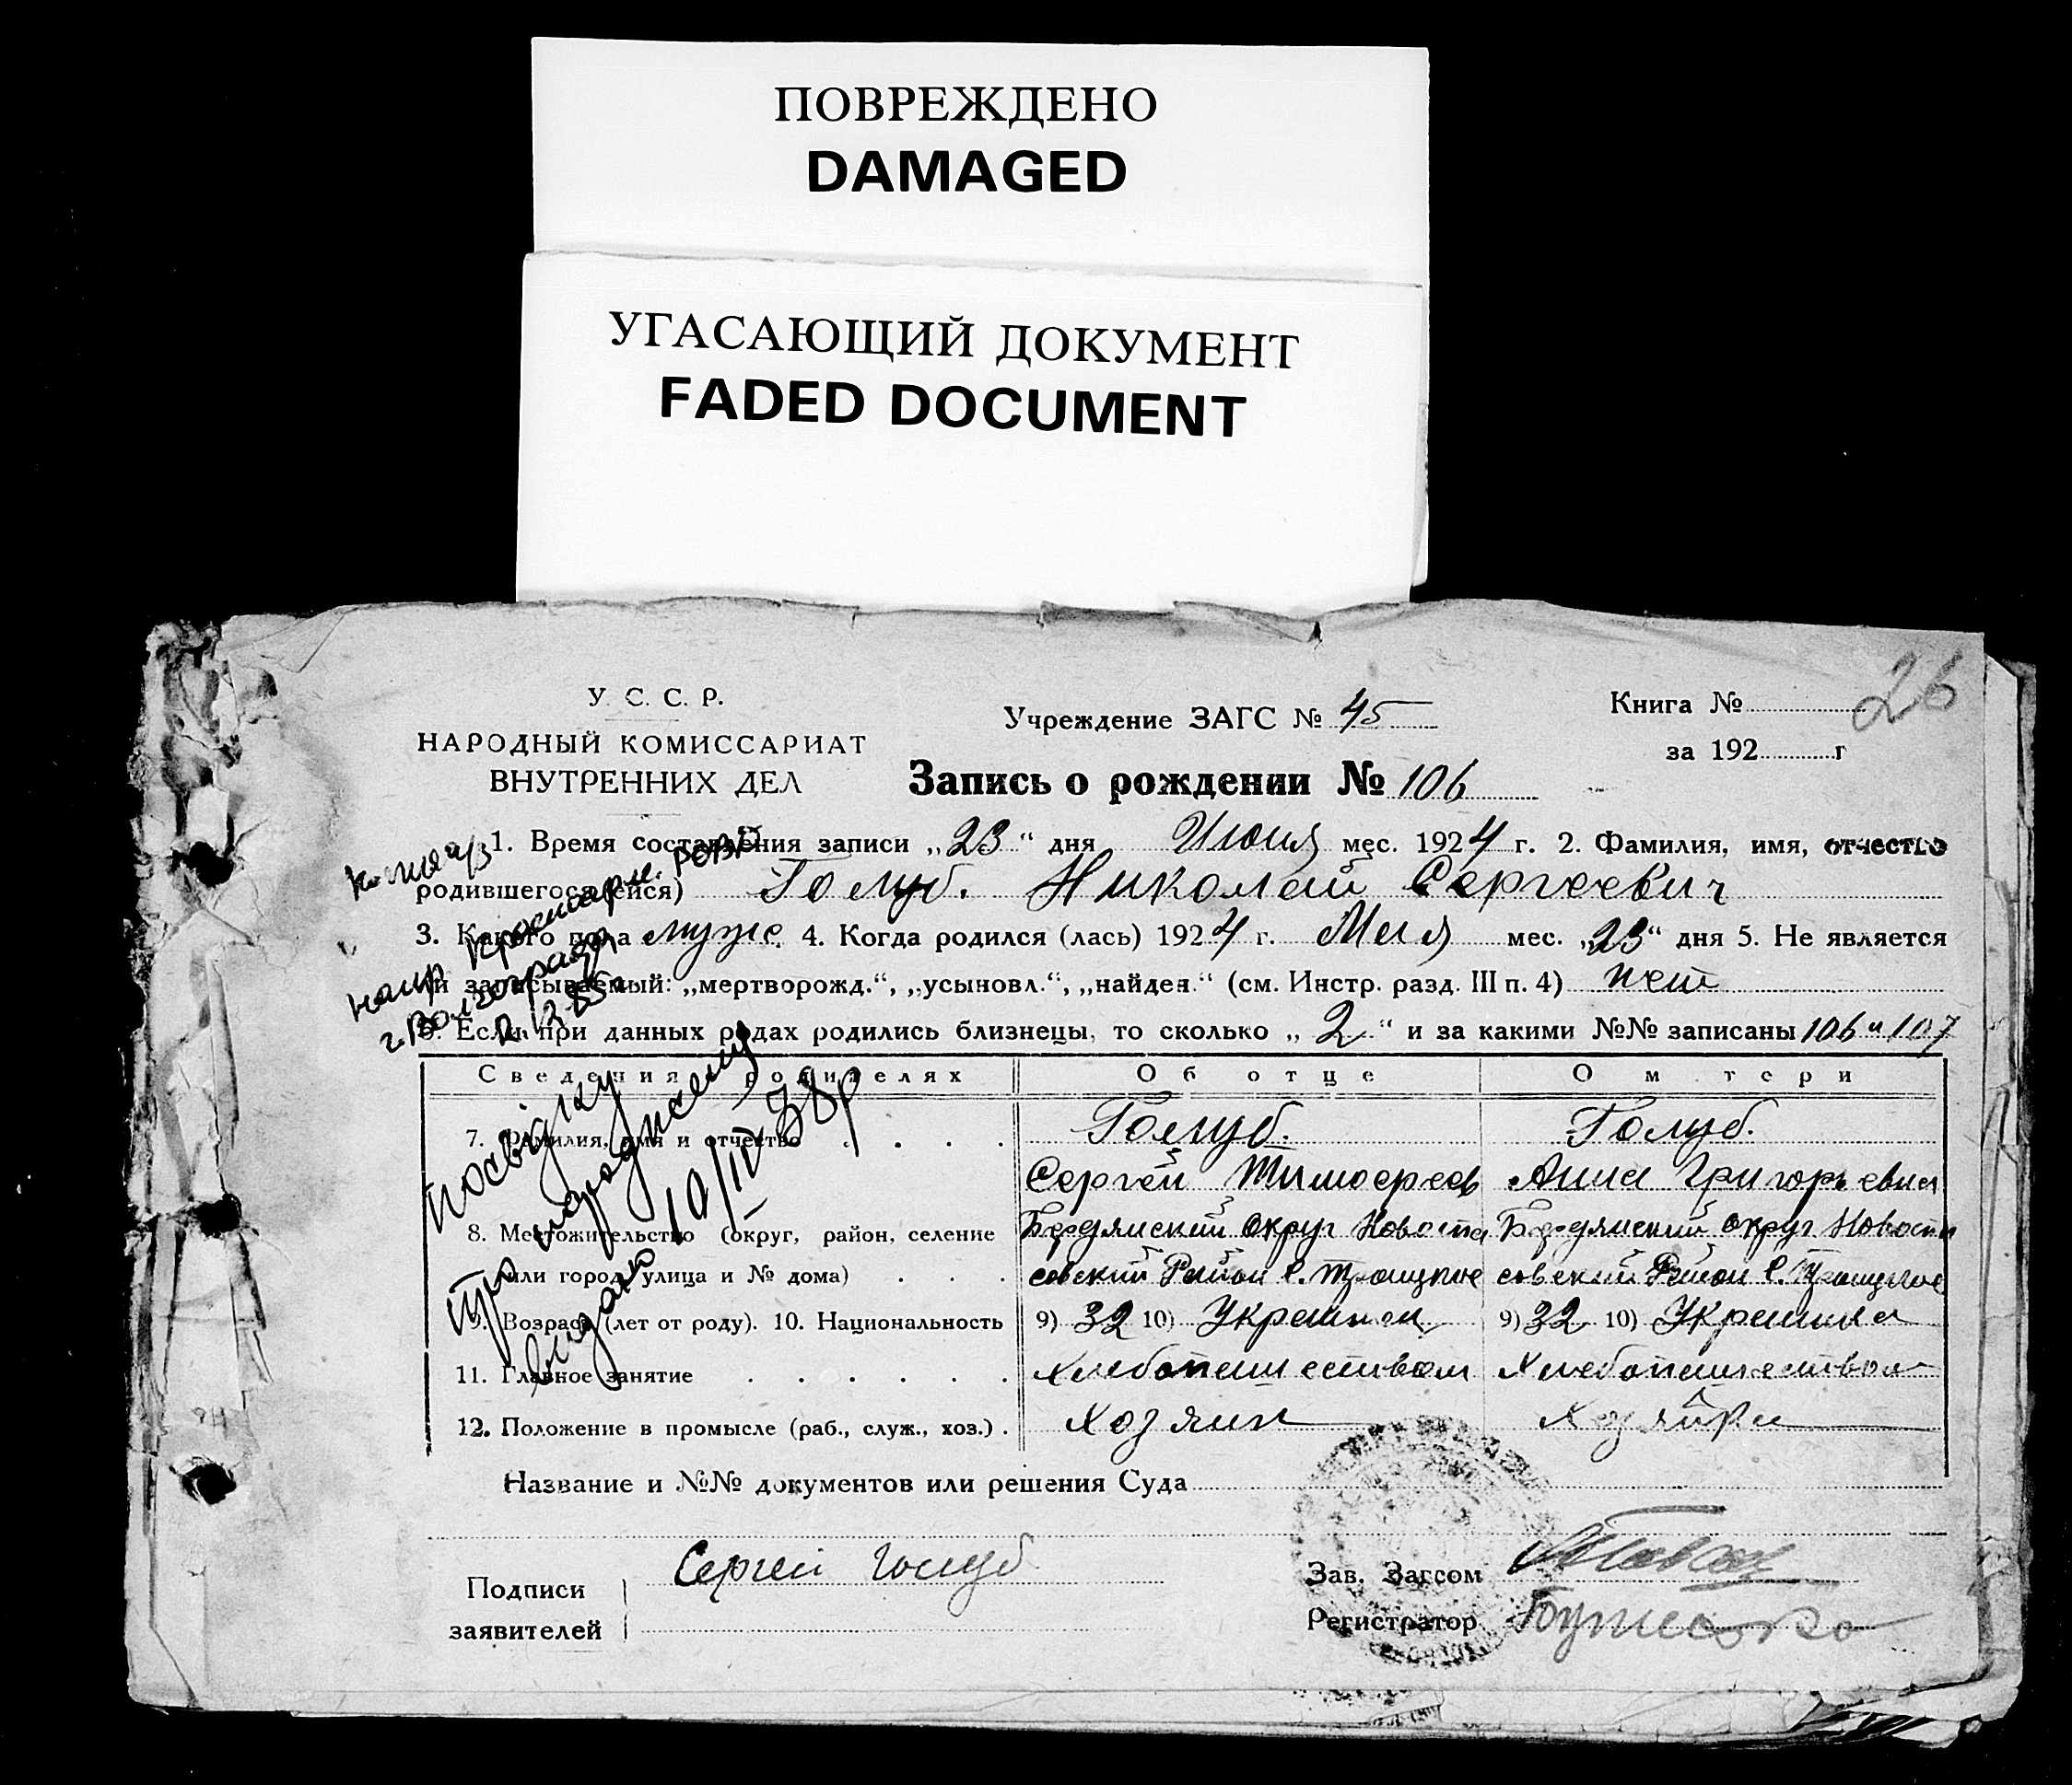 ПОВРЕЖДЕНО
DAMAGED
УГАСАЮЩИЙ ДОКУМЕНТ
FADED DOCUMENT
26
У. С. С. Р.
НАРОДНЫЙ КОМИССАРИАТ
ВНУТРЕННИХ ДЕЛ
Учреждение ЗАГС № 45
Книга №
за 192 г
Запись о рождении № 106
1. Время составления записи „23“ дня Июня мес. 1924 г. 2. Фамилия, имя, отчество
родившегося(ейся) Голуб. Николай Сергеевич
3. Какого пола мужс. 4. Когда родился (лась) 1924 г. Мая мес. „23“ дня 5. Не является
ли записываемый: „мертворожд.“, „усыновл.“, „найден.“ (см. Инстр. разд. III п. 4) нет
6. Если при данных родах родились близнецы, то сколько „2“ и за какими №№ записаны 106 и 107
копия а/з
напр Красноарм. РОВД
г. Волгограда
Сведения родителях Об отце О м тери
7. Фамилия, имя и отчество Голуб. Голуб.
Сергей Тимофеев Анна Григорьевна
8. Местожительство (округ, район, селение Бердянский округ Новоспа Бердянский округ Новосп
или город, улица и № дома) совский Район с. Троицкое совский Район с. Троицкое
9. Возраст (лет от роду). 10. Национальность 9) 32 10) Украинец 9) 32 10) Украинка
11. Главное занятие Хлебопашеством Хлебопашеством
12. Положение в промысле (раб., служ., хоз.) Хозяин Хозяйка
посвідку
про народження
видано 10/IV 38р
Название и №№ документов или решения Суда
Подписи
заявителей
Сергей Голуб
Зав. Загсом
Регистратор